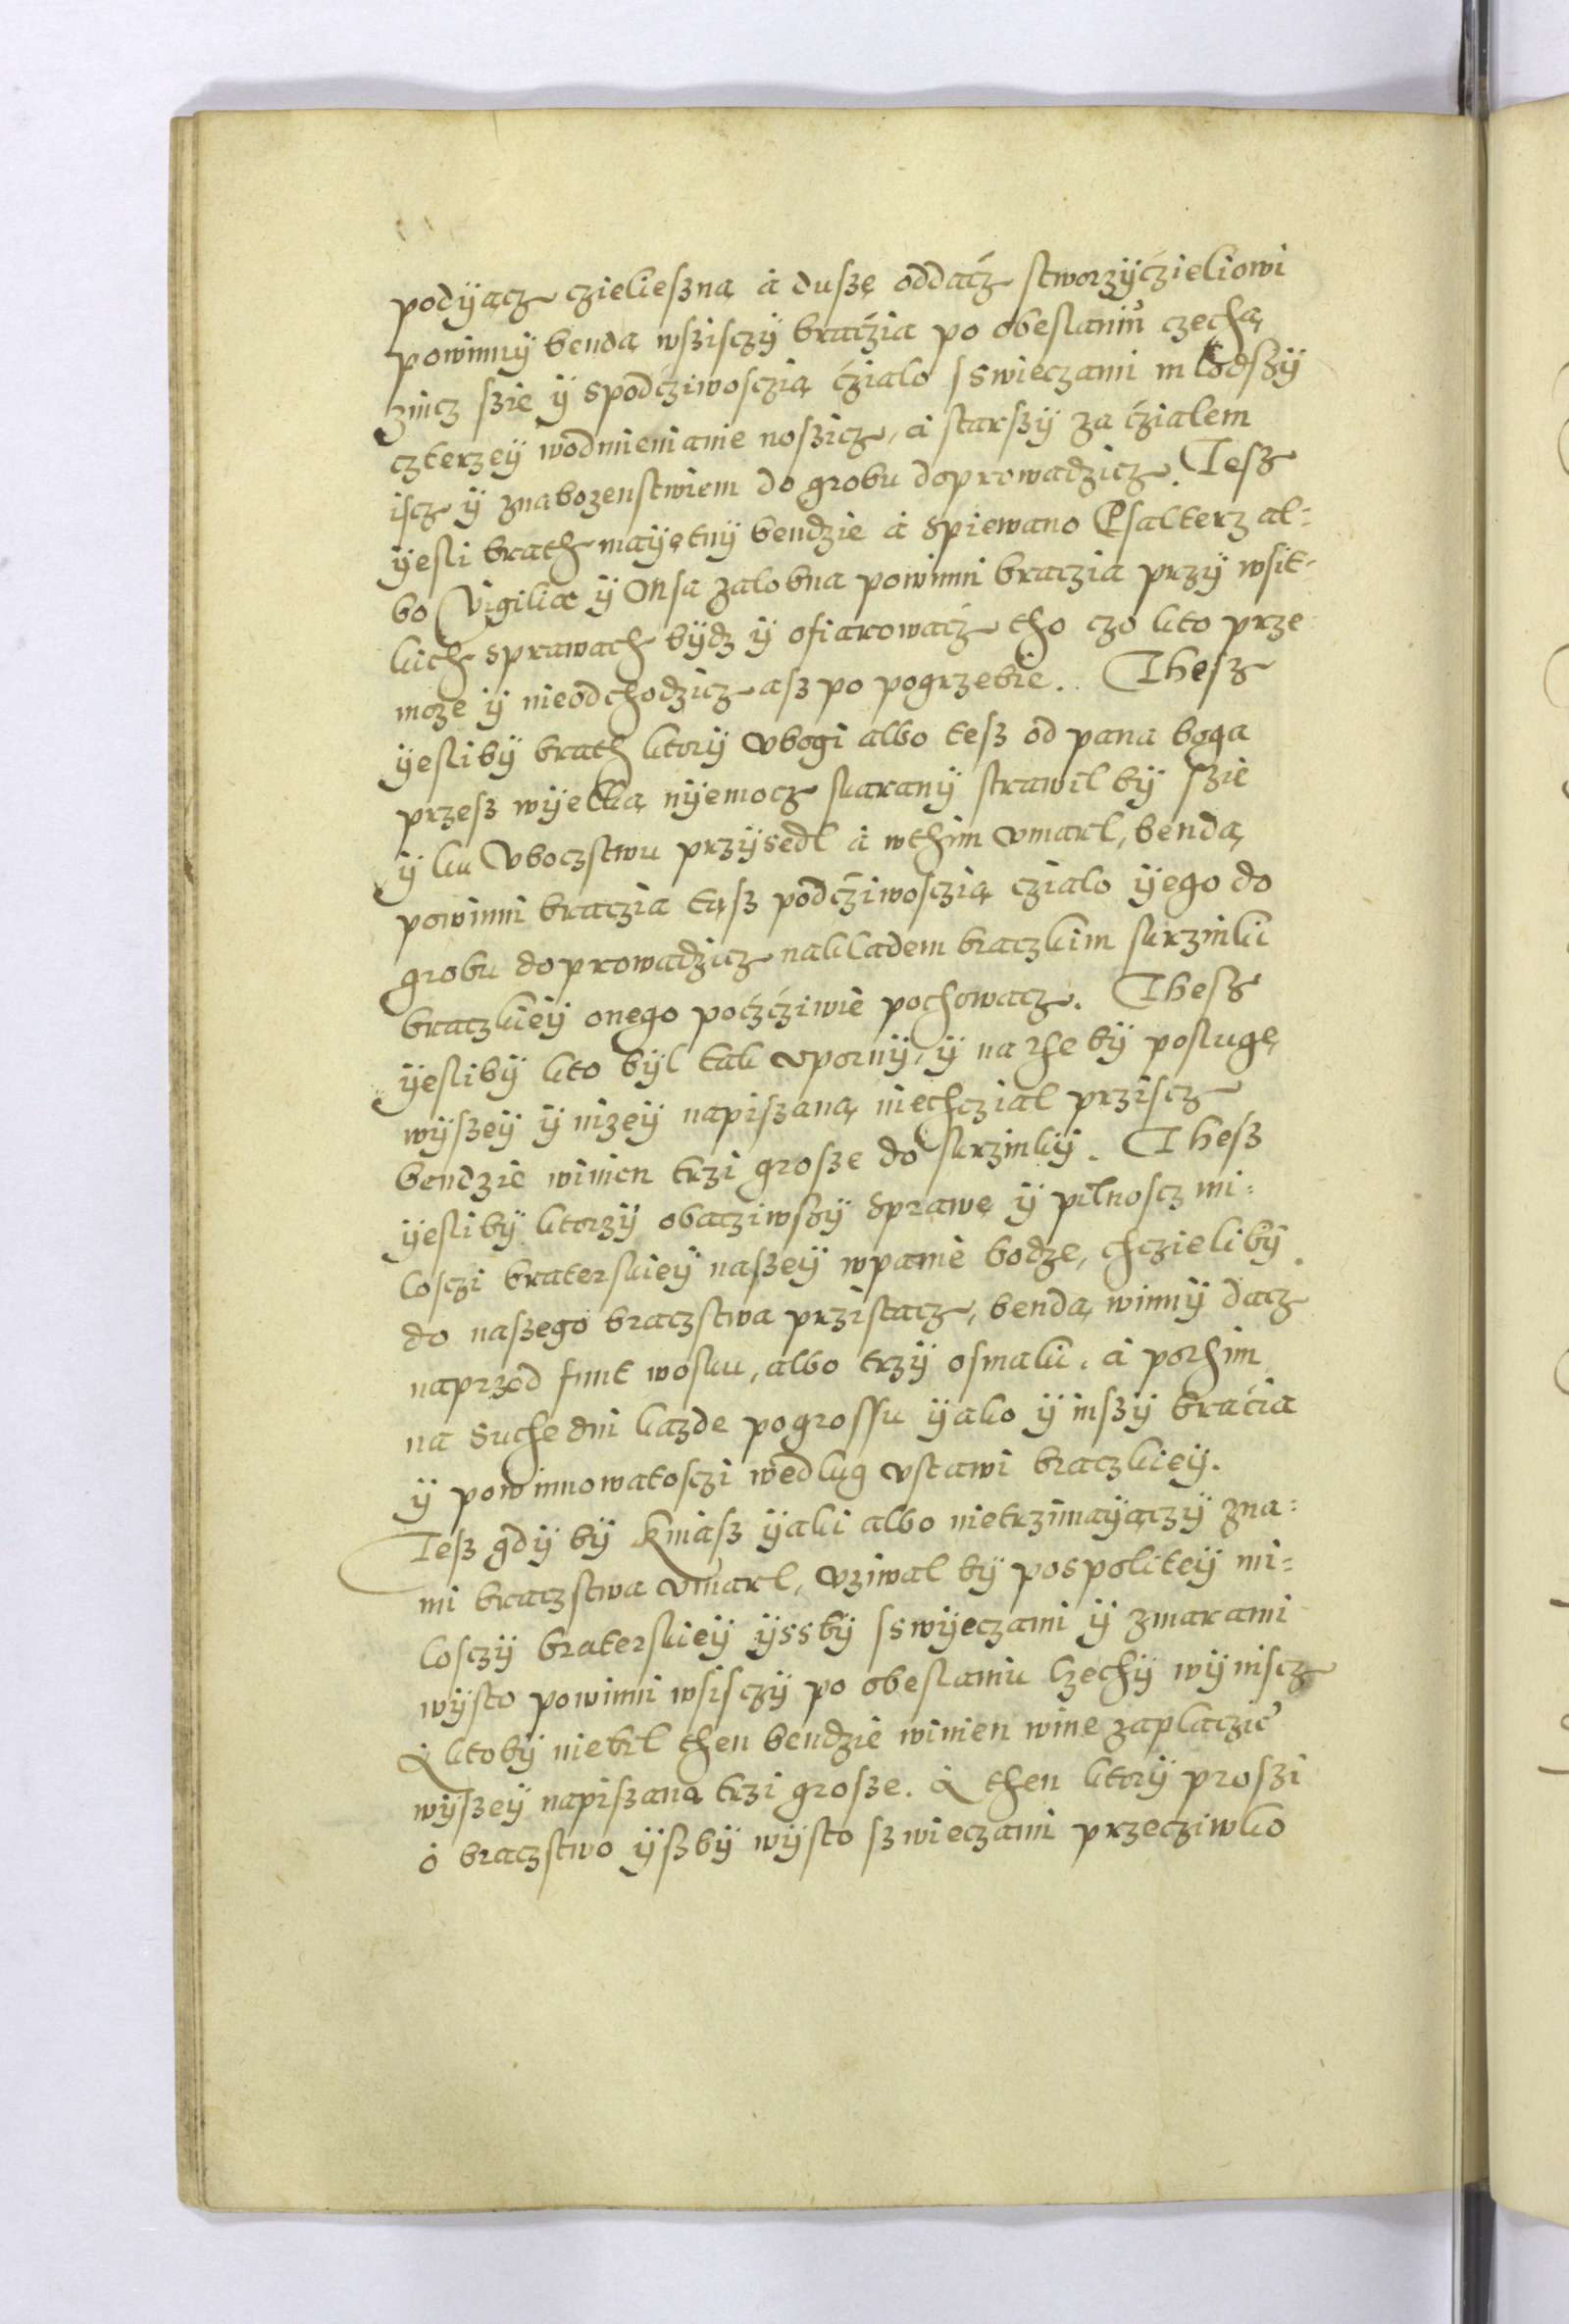 podÿącz czielieszną á duszę oddácz stworzÿczieliowi
powinnÿ bendą wszisczÿ braczia po obeslaniu czechą
znicz szie ÿ spodcziwosczią czialo s swieczami młodszÿ
czterzeÿ wodmienianie noszicz, á starszÿ za czialem
iscz ÿ znabozenstwiem do grobu doprowadzicz. Tesz
ÿesli brath maÿętnÿ bendzie á spiewano Psalterz al=
bo Vigiliæ ÿ Msa zalobna powinni braczia przÿ wsit=
kich sprawach bÿdz ÿ ofiarowácz tho czo kto prze
moze ÿ nieodchodzicz asz po pogrzebie. Thesz
ÿeslibÿ brath ktorÿ vbogi albo tesz od pana boga
przesz wÿelką nÿemocz skaranÿ strawil bÿ szie
ÿ ku Vboczstwu przÿsedl á wthim vmarl, bendą
powinni braczia tąsz podcziwosczią czialo ÿego do
grobu doprowadzicz nakladem braczkim skrzinki
braczkiéÿ onego poczcziwie pochowacz. Thesz
ÿeslibÿ kto bÿl tak vpornÿ, ÿ na rhe bÿ poslugę
wÿszeÿ ÿ nizeÿ napiszaną niechczial prziscz
bendzie winien trzi grosze do skrzinkÿ. Thesz
ÿeslibÿ ktorzÿ obacziwszÿ sprawę ÿ pilnoscz mi=
losczi braterskieÿ naszeÿ wpanie bodze, chczielibÿ
do naszego braczstwa przistacz, bendą winnÿ dacz
naprzod funt wosku, albo trzÿ osmaki. á pothim
na suchedni kazde pogrossu ÿako ÿ inszÿ bracia
ÿ powinnowatosczi wedlug vstawi braczkieÿ.
Tesz gdÿ bÿ Kniasz ÿaki albo nietrzimaÿączÿ zna=
mi braczstwa vmarl, vziwal bÿ pospoliteÿ mi=
losczÿ braterskieÿ ÿssbÿ s swÿeczami ÿ zmarami
wÿsto powinni wsisczÿ po obeslaniu czechÿ wÿniscz
A ktobÿ niebil then bendzie winien wine zaplaczic
wÿszeÿ napiszaną trzi grosze. A then ktorÿ proszi
ó braczstwo ÿszbÿ wÿsto szwieczami przecziwko